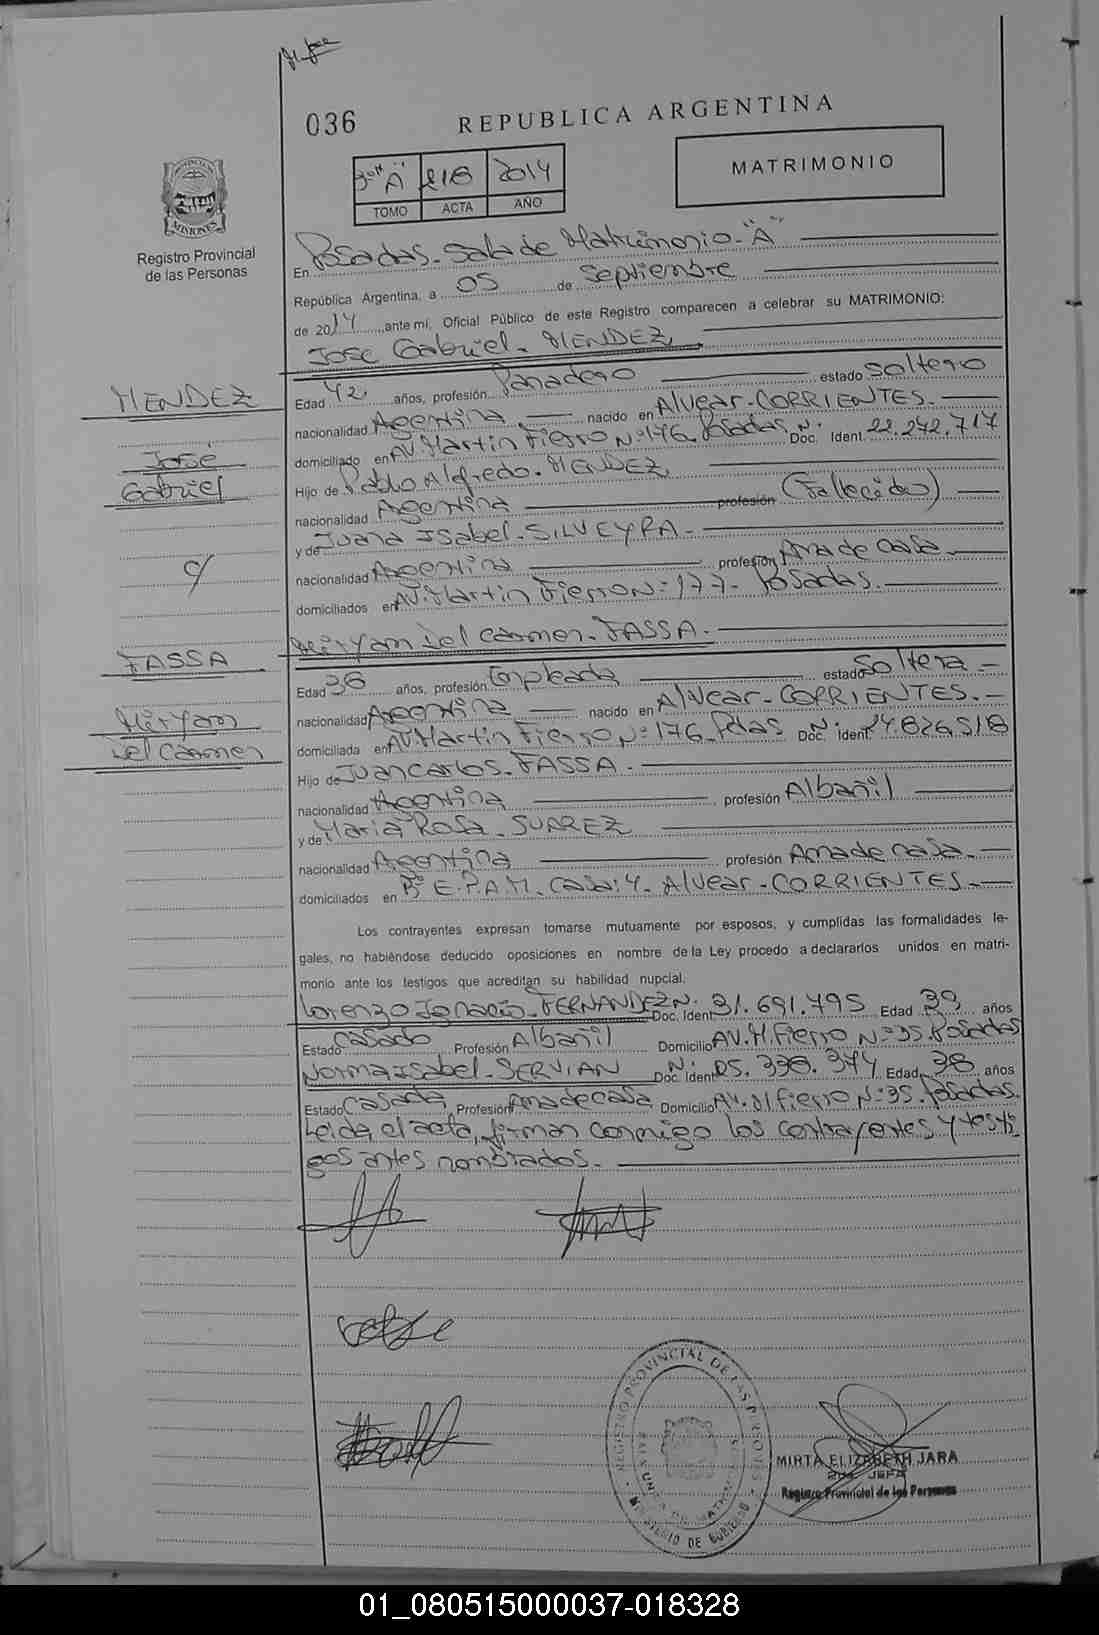 036
REPUBLICA ARGENTINA
"A" 218 2014
TOMO ACTA AÑO
MATRIMONIO
PROVINCIA DE MISIONES
Registro Provincial
de las Personas
En Posadas - Sala de Matrimonio - "A"
República Argentina, a 05 de Septiembre
de 2014 ante mí, Oficial Público de este Registro comparecen a celebrar su MATRIMONIO:
José Gabriel - MENDEZ
MENDEZ
José
Gabriel
c/
FASSA
Miryam
del Carmen
Edad 42 años, profesión Panadero estado Soltero
nacionalidad Argentina nacido en Alvear - CORRIENTES.
domiciliado en AV. Martin Fierro Nº 176 Posadas Doc. Ident. Nº 22.242.717
Hijo de Pablo Alfredo - MENDEZ
nacionalidad Argentina profesión (Fallecido)
y de Juana Isabel - SILVEYRA -
nacionalidad Argentina profesión Ama de casa
domiciliados en AV. Martin Fierro Nº: 177 - Posadas.
Miryam del Carmen - FASSA.
Edad 36 años, profesión Empleada estado Soltera
nacionalidad Argentina nacido en Alvear - CORRIENTES.
domiciliada en AV. Martin Fierro Nº 176 Pdas Doc. Ident Nº 24.826.518
Hijo de Juan Carlos - FASSA.
nacionalidad Argentina profesión Albañil
y de María Rosa - SUAREZ
nacionalidad Argentina profesión Ama de casa.
domiciliados en Bº E.P.A.M. casa: 4. Alvear - CORRIENTES
Los contrayentes expresan tomarse mutuamente por esposos, y cumplidas las formalidades le-
gales, no habiéndose deducido oposiciones en nombre de la Ley procedo a declararlos unidos en matri-
monio ante los testigos que acreditan su habilidad nupcial.
Lorenzo Ignacio - FERNANDEZ Doc. Ident Nº 31.691.795 Edad 39 años
Estado Casado Profesión Albañil Domicilio AV. M. Fierro Nº 35. Posadas
Norma Isabel - SERVIAN Doc. Ident Nº 374 Edad 38 años
Estado Casada Profesión Ama de casa Domicilio AV. M Fierro Nº 35. Posadas
Leída el acta, firman conmigo los contrayentes y testi-
gos antes nombrados.
REGISTRO PROVINCIAL DE LAS PERSONAS
MINISTERIO DE GOBIERNO
MIRTA ELIZABETH JARA
JEFA
Registro Provincial de las Personas
01_080515000037-018328